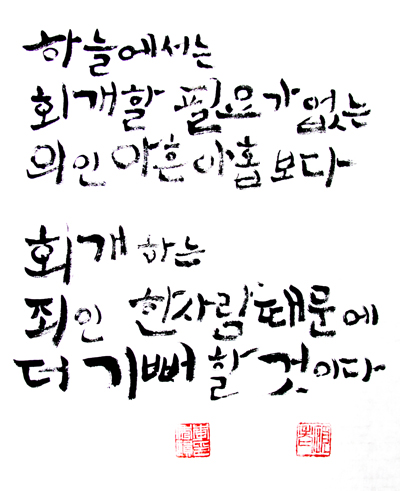 하늘에서는
회개할 필요가 없는
의인 아흔아홉보다
회개하는
죄인 한사람 때문에
더 기뻐할 것이다